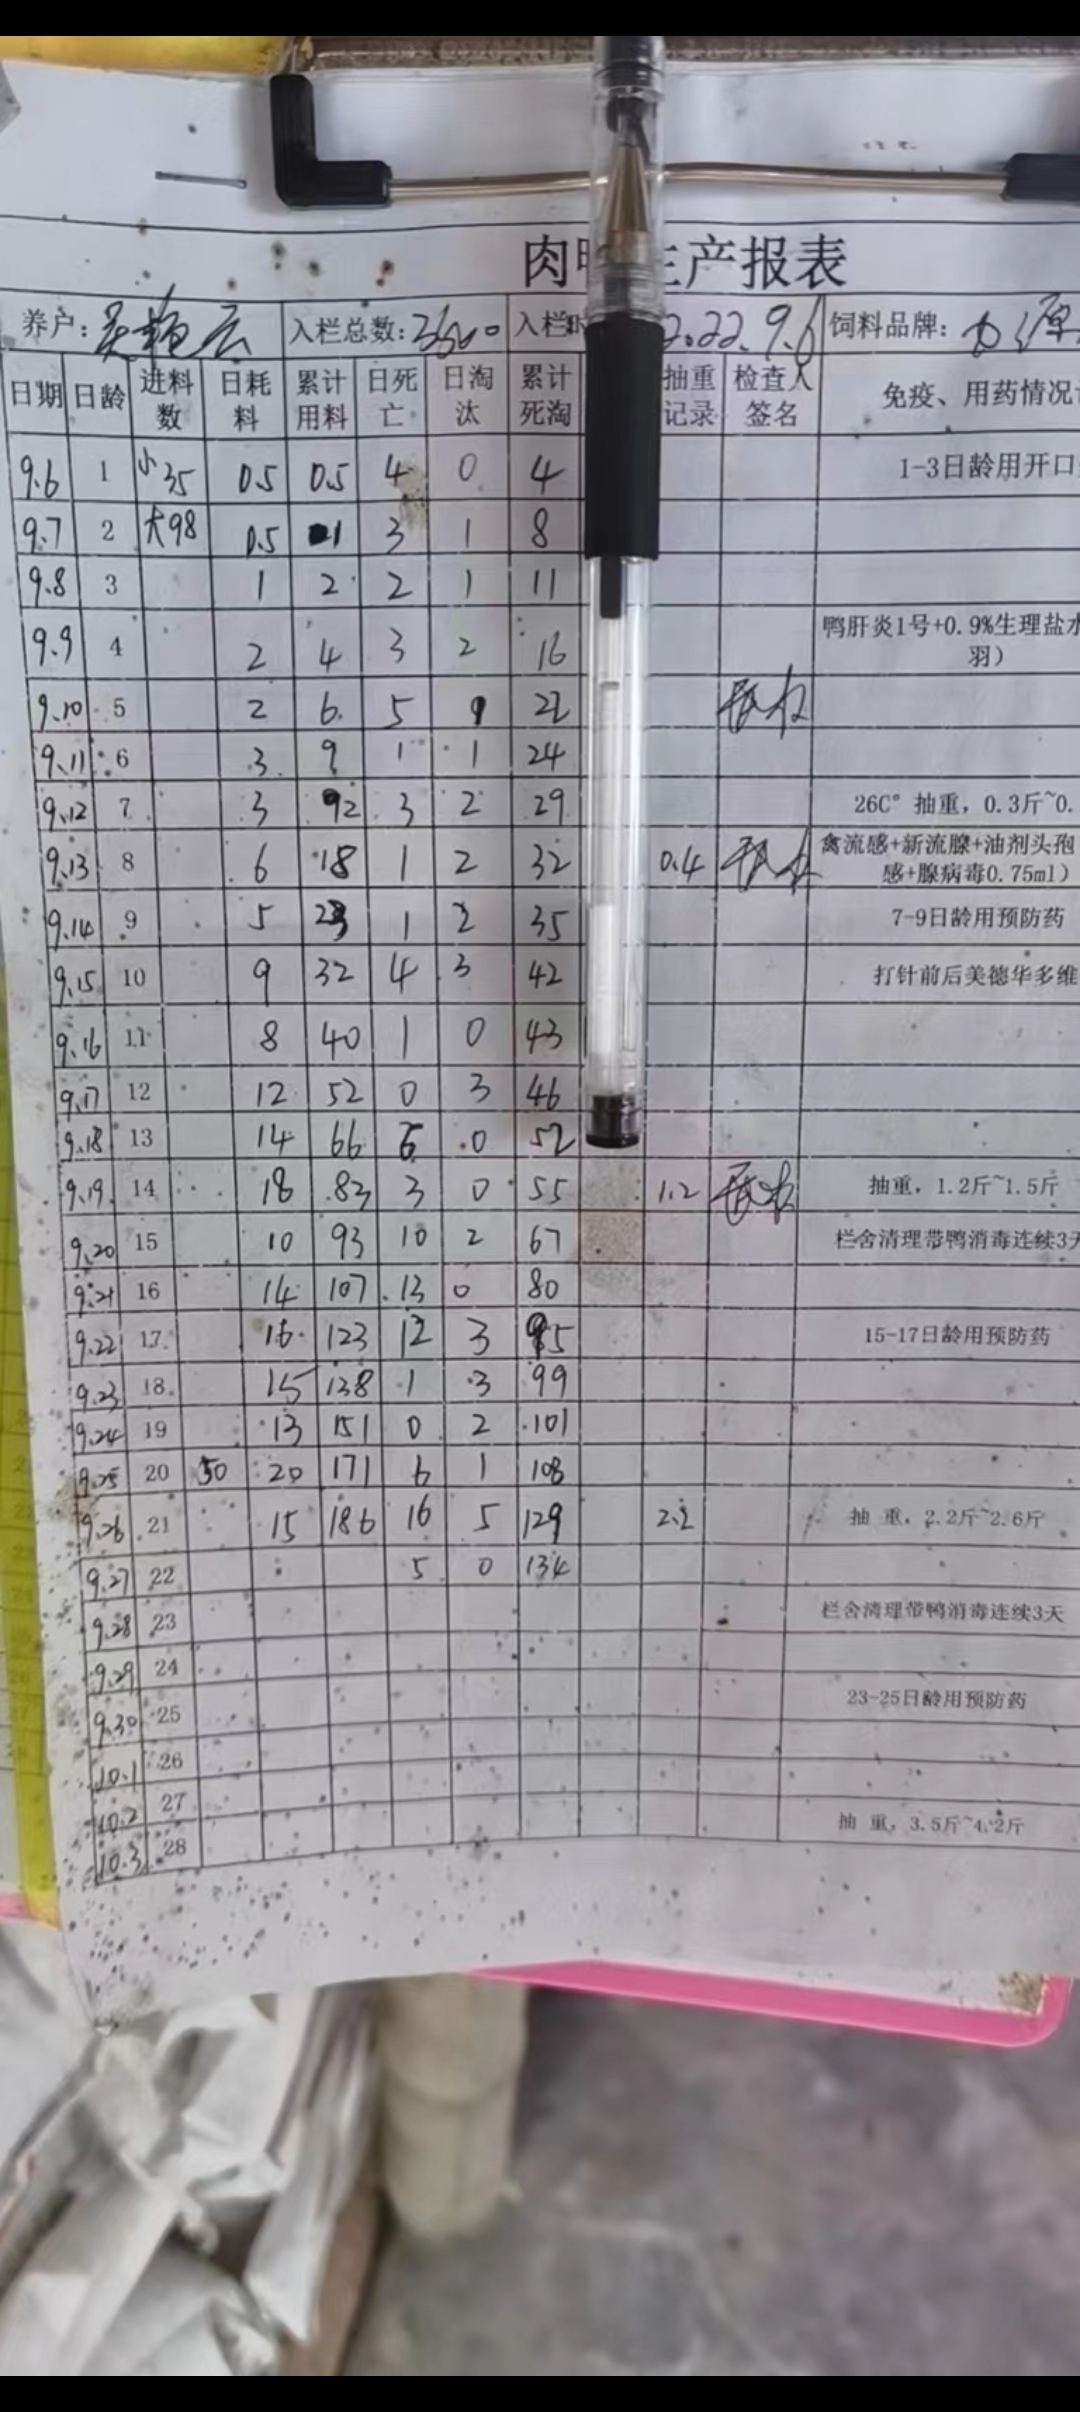 肉 生产报表
养户: 入栏总数: 3600 入栏时 2022.9.6 饲料品牌:
日期 日龄 进料数 日耗料 累计用料 日死亡 日淘汰 累计死淘 抽重记录 检查人签名 免疫、用药情况
9.6 1 小35 0.5 0.5 4 0 4 1-3日龄用开口
9.7 2 大98 0.5 1 3 1 8
9.8 3 1 2 2 1 11
9.9 4 2 4 3 2 16 鸭肝炎1号+0.9%生理盐水
羽）
9.10 5 2 6 5 1 22
9.11 6 3 9 1 1 24
9.12 7 3 12 3 2 29 26C° 抽重，0.3斤~0.
9.13 8 6 18 1 2 32 0.4 禽流感+新流腺+油剂头孢
感+腺病毒0.75ml）
9.14 9 5 23 1 2 35 7-9日龄用预防药
9.15 10 9 32 4 3 42 打针前后美德华多维
9.16 11 8 40 1 0 43
9.17 12 12 52 0 3 46
9.18 13 14 66 6 0 52
9.19 14 18 83 3 0 55 1.2 抽重，1.2斤~1.5斤
9.20 15 10 93 10 2 67 栏舍清理带鸭消毒连续3天
9.21 16 14 107 13 0 80
9.22 17 16 123 12 3 95 15-17日龄用预防药
9.23 18 15 138 1 3 99
9.24 19 13 151 0 2 101
9.25 20 50 20 171 6 1 108
9.26 21 15 186 16 5 129 2.2 抽 重，2.2斤~2.6斤
9.27 22 5 0 134
9.28 23 栏舍清理带鸭消毒连续3天
9.29 24
9.30 25 23-25日龄用预防药
10.1 26
10.2 27
10.3 28 抽 重，3.5斤~4.2斤